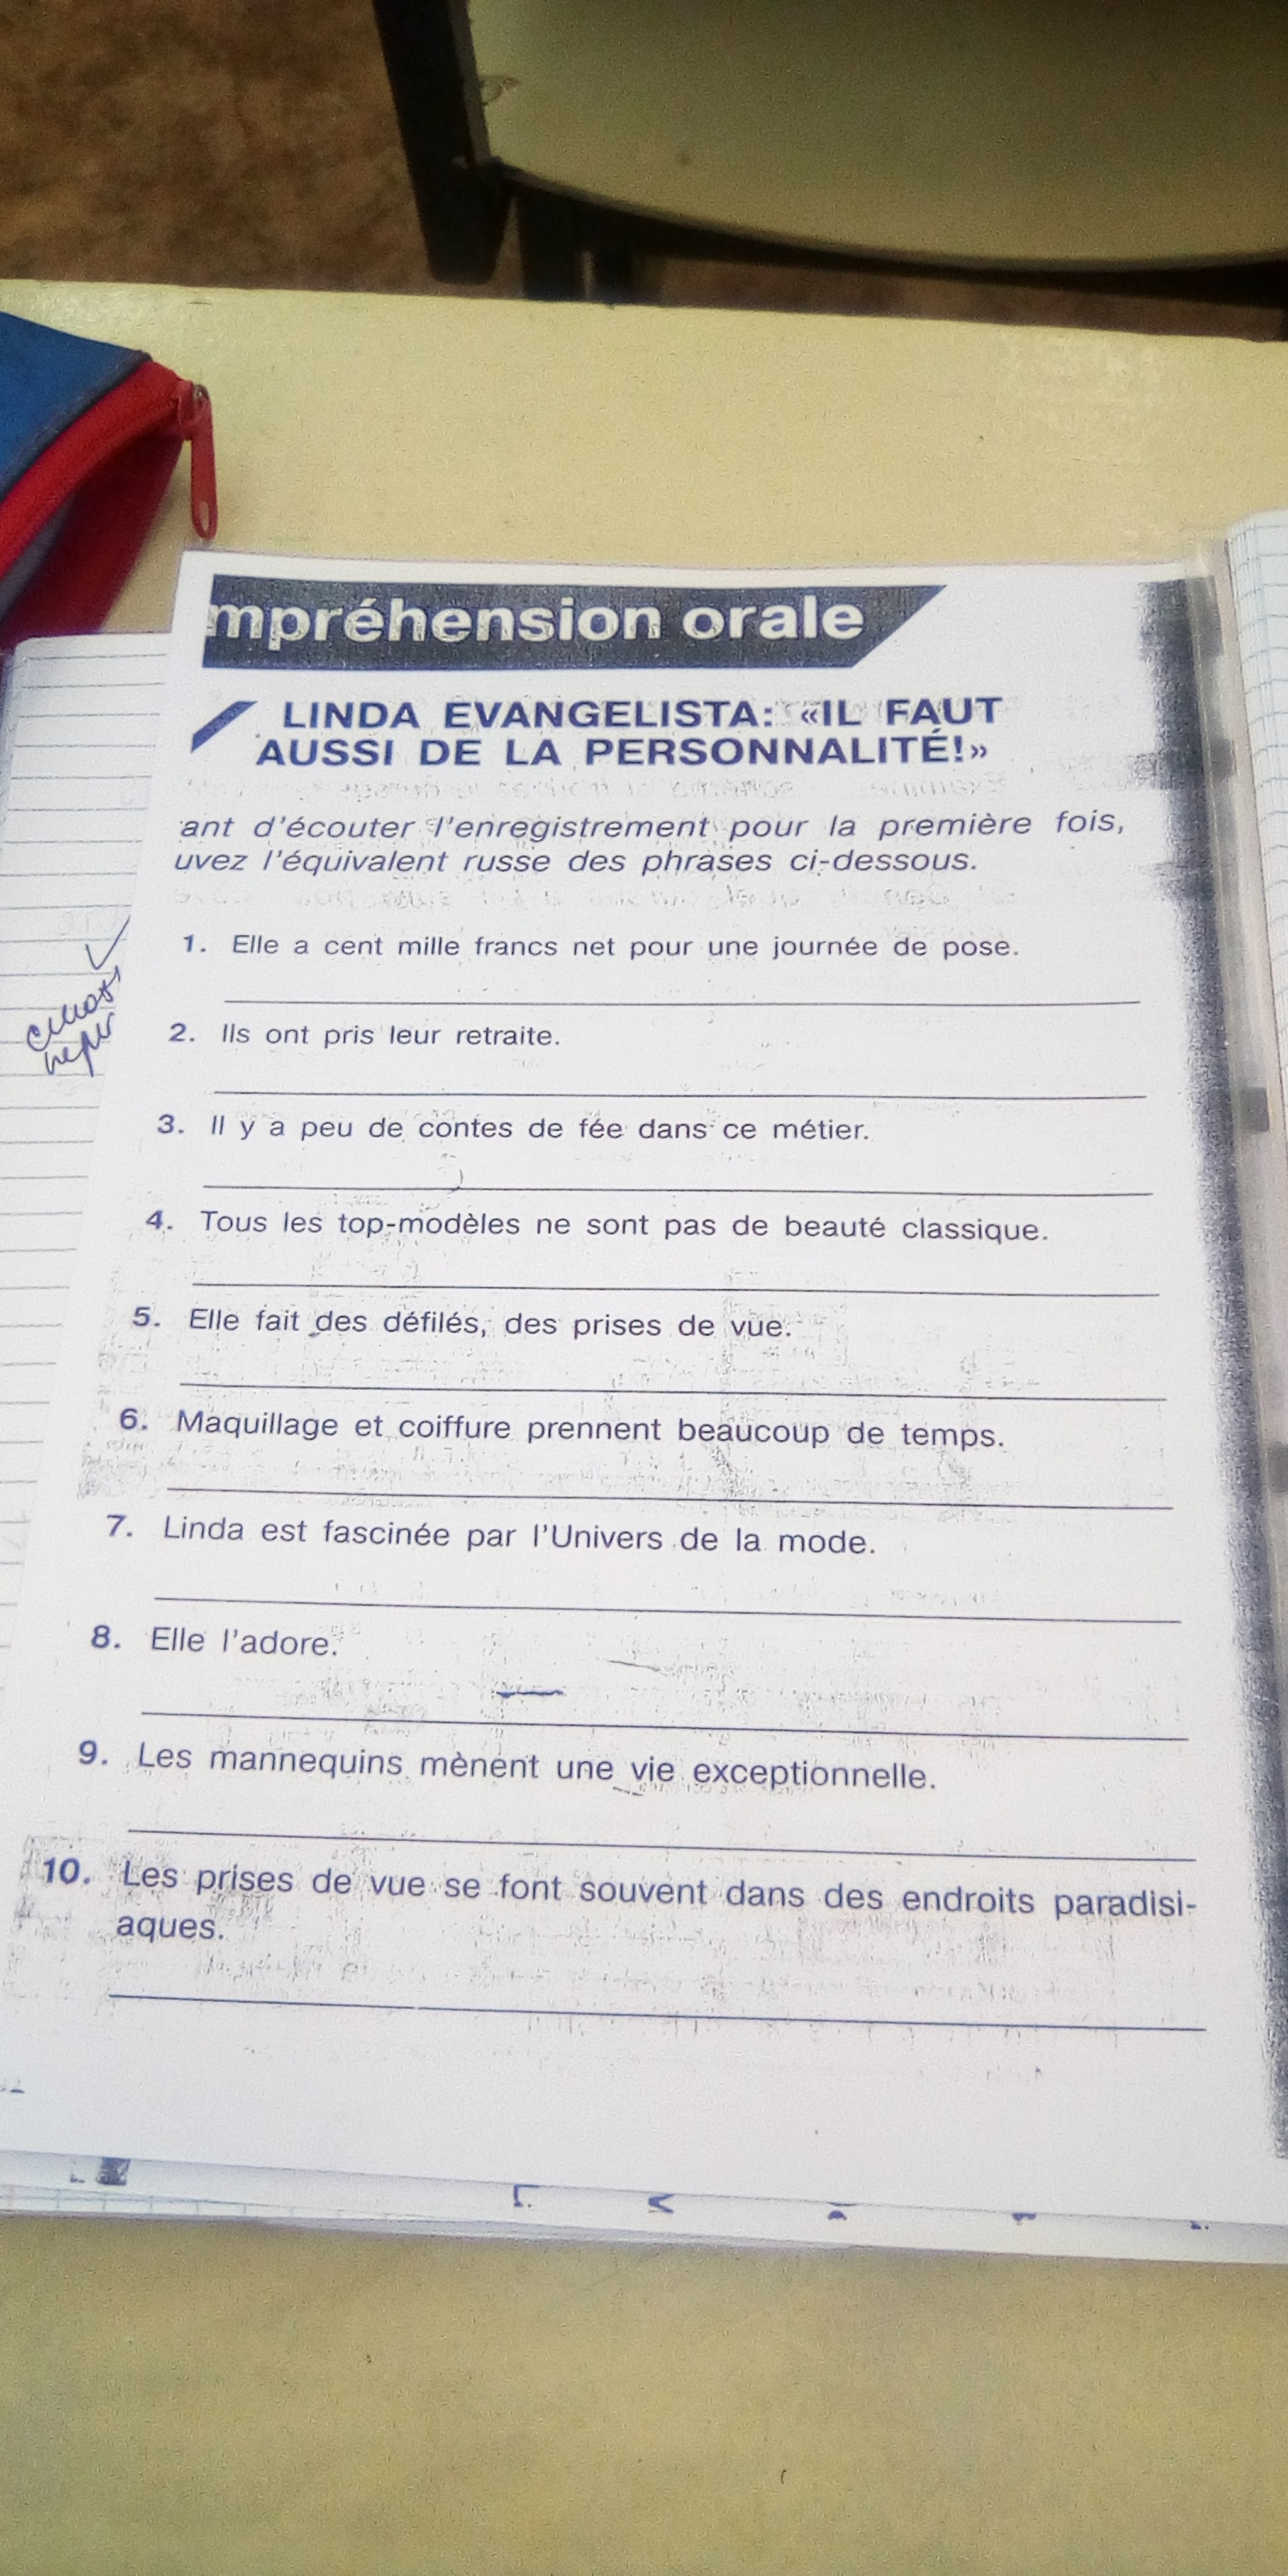 mpréhension orale
LINDA EVANGELISTA: «IL FAUT
AUSSI DE LA PERSONNALITÉ!»
ant d'écouter l'enregistrement pour la première fois,
uvez l'équivalent russe des phrases ci-dessous.
1. Elle a cent mille francs net pour une journée de pose.
2. Ils ont pris leur retraite.
3. Il y a peu de contes de fée dans ce métier.
4. Tous les top-modèles ne sont pas de beauté classique.
5. Elle fait des défilés, des prises de vue.
6. Maquillage et coiffure prennent beaucoup de temps.
7. Linda est fascinée par l'Univers de la mode.
8. Elle l'adore.
9. Les mannequins mènent une vie exceptionnelle.
10. Les prises de vue se font souvent dans des endroits paradisi-
aques.